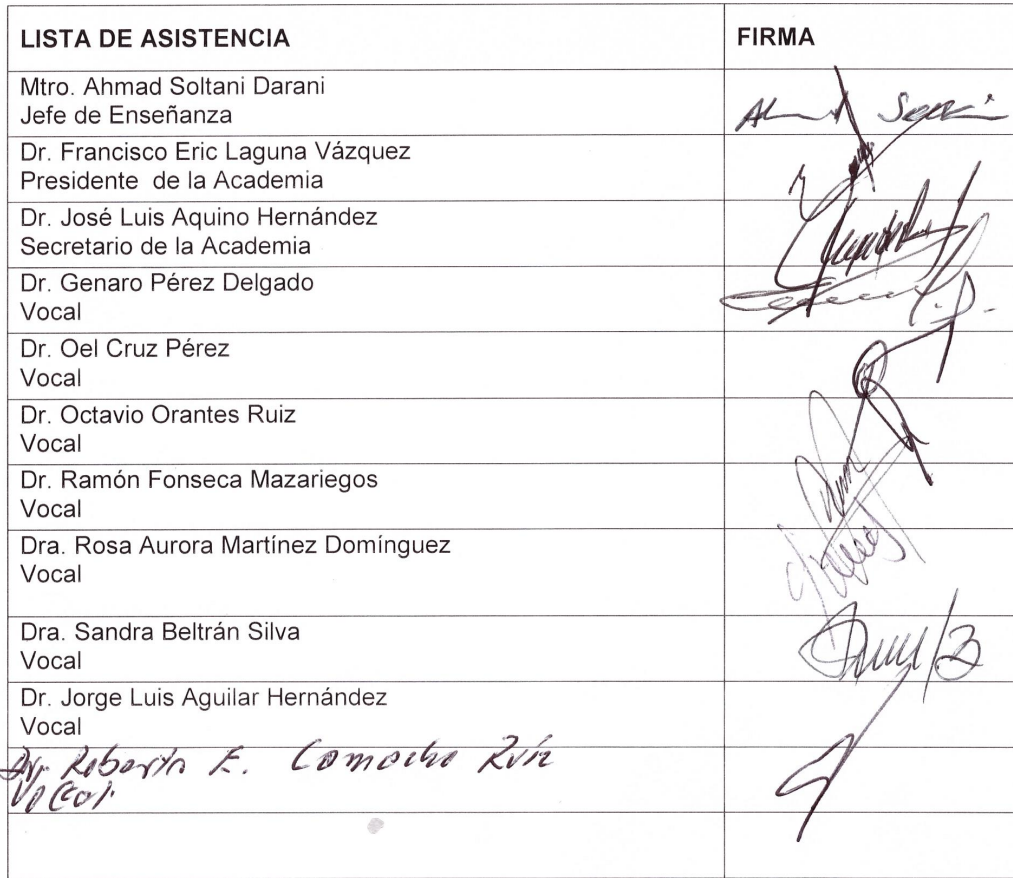 LISTA DE ASISTENCIA FIRMA
Mtro. Ahmad Soltani Darani
Jefe de Enseñanza
Dr. Francisco Eric Laguna Vázquez
Presidente de la Academia
Dr. José Luis Aquino Hernández
Secretario de la Academia
Dr. Genaro Pérez Delgado
Vocal
Dr. Oel Cruz Pérez
Vocal
Dr. Octavio Orantes Ruiz
Vocal
Dr. Ramón Fonseca Mazariegos
Vocal
Dra. Rosa Aurora Martínez Domínguez
Vocal
Dra. Sandra Beltrán Silva
Vocal
Dr. Jorge Luis Aguilar Hernández
Vocal
Dr. Roberto E. Camacho Ruíz
Vocal